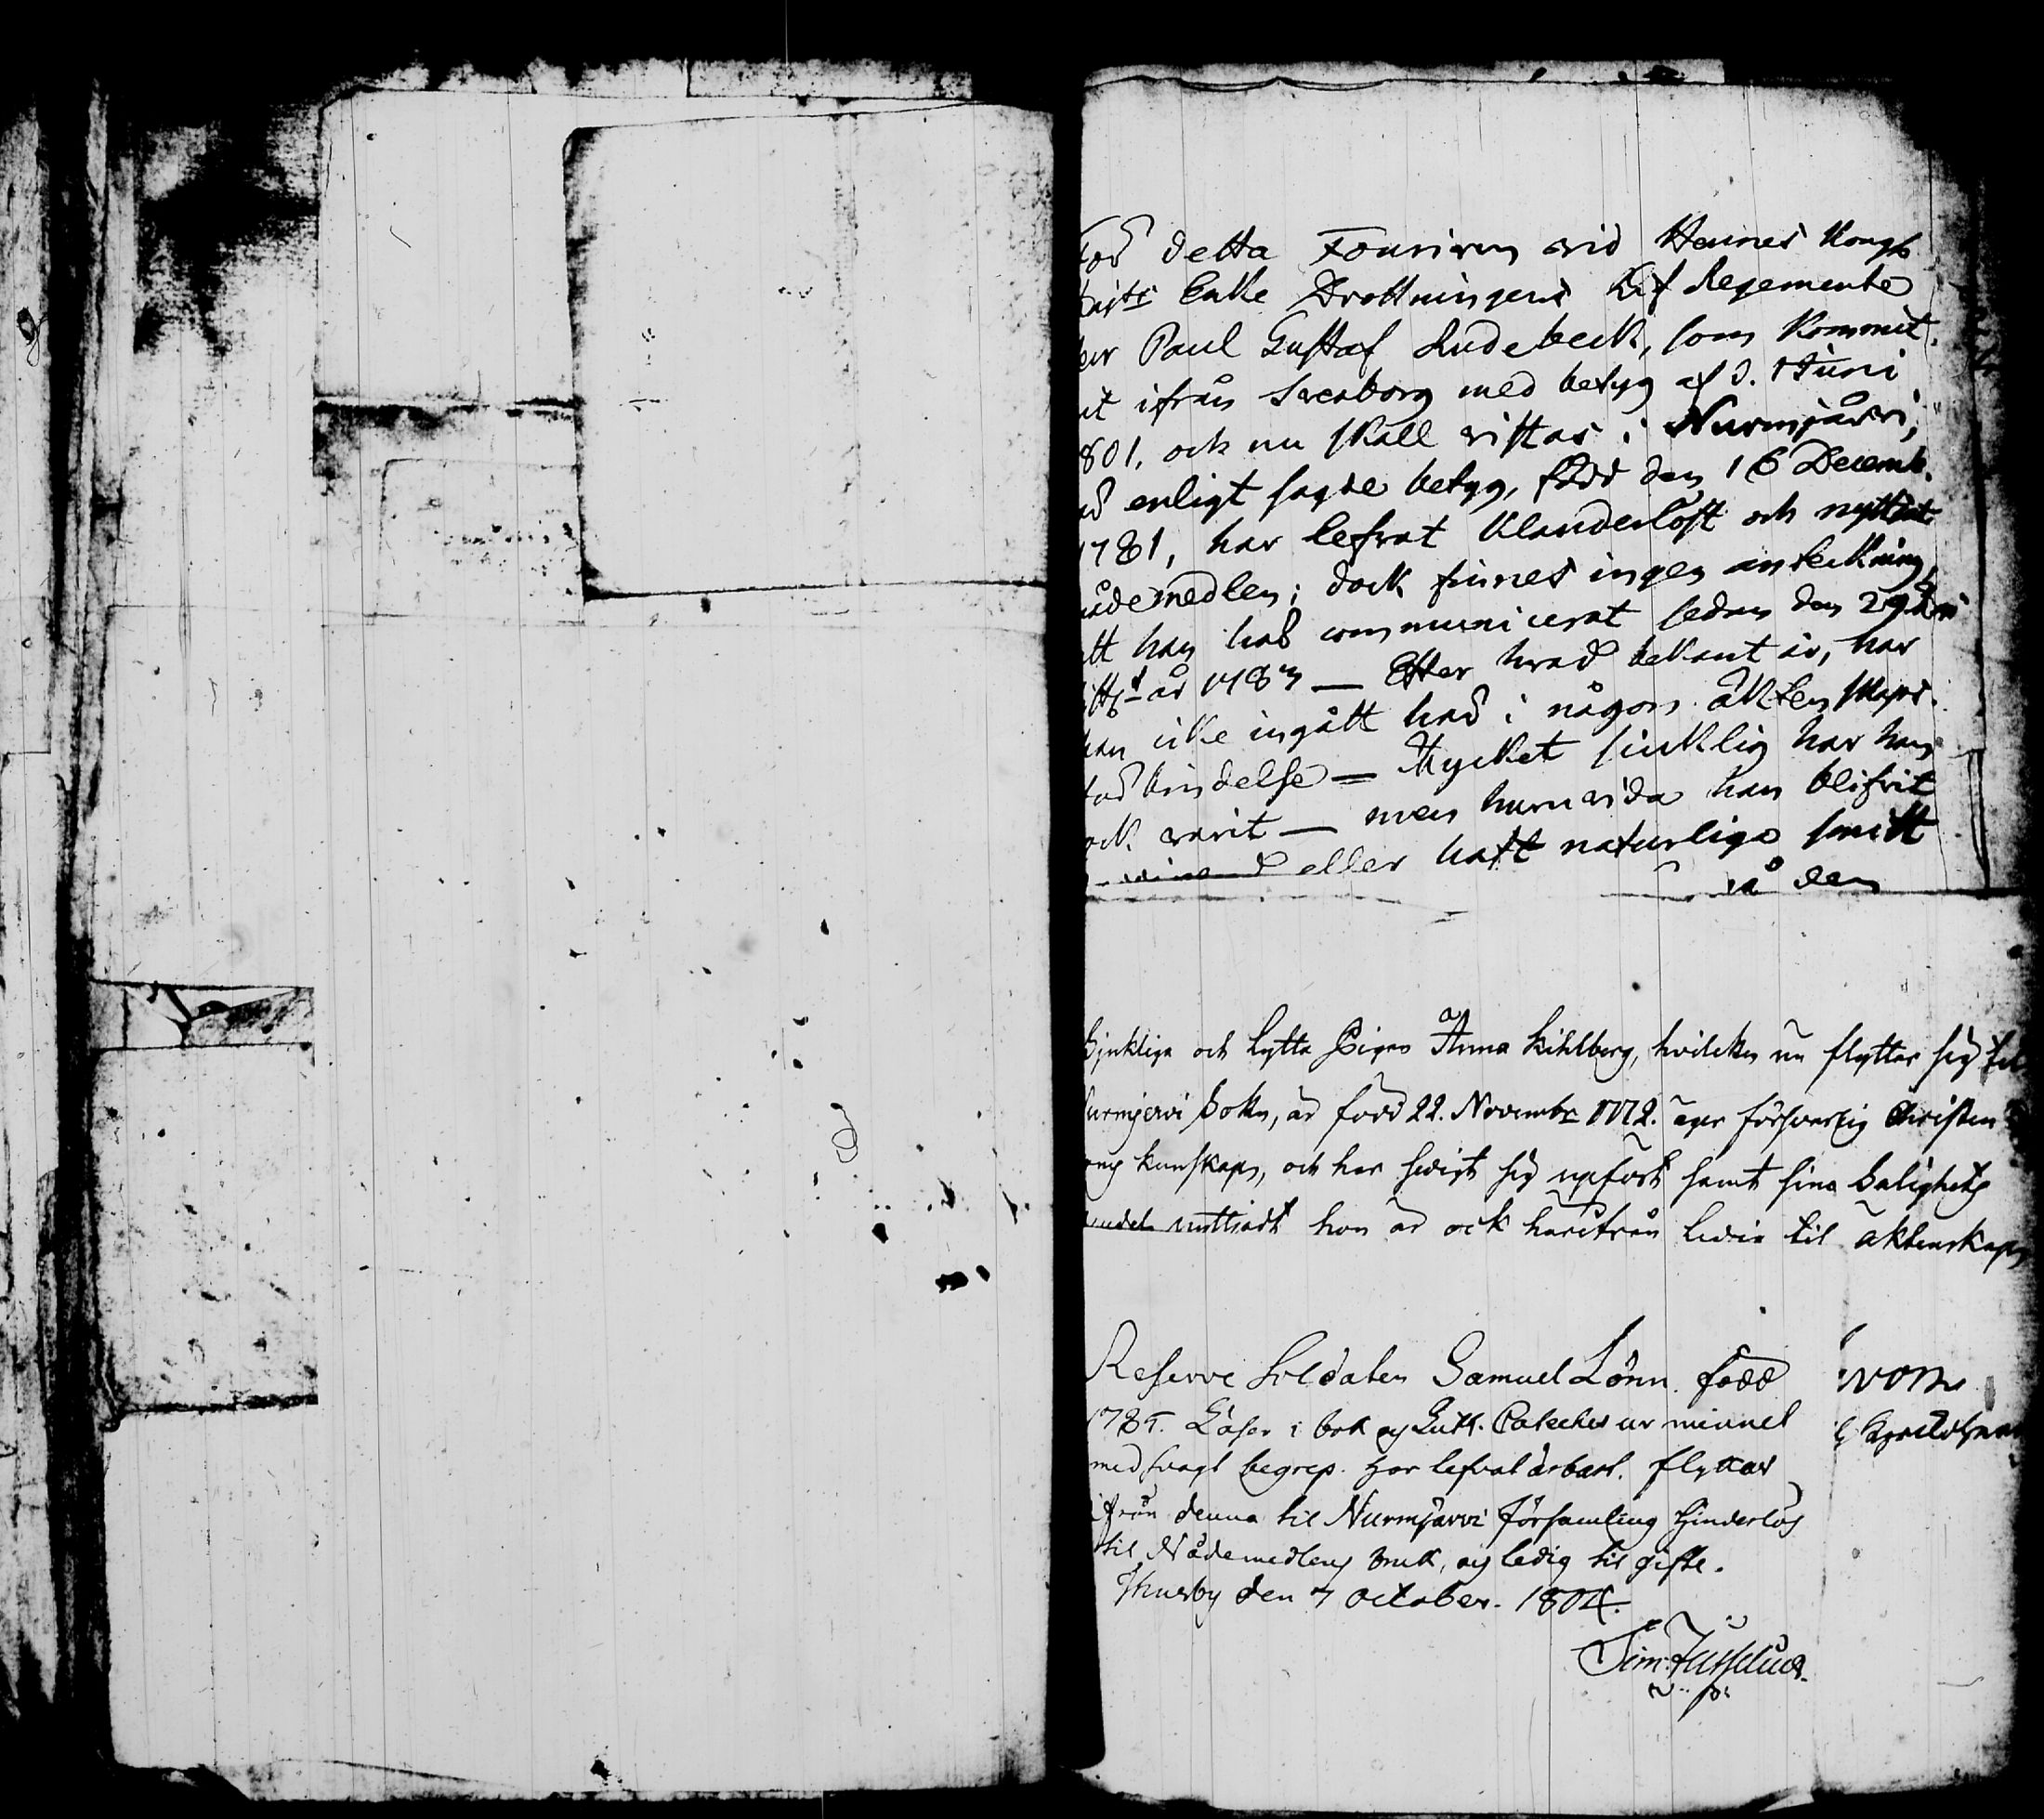 För detta Fouriren vid Hennes Kongl
Enke Drottningens Lif Regemente
Paul Gustaf Rudebeck, som kommit
ut ifrån Sveaborg med betyg af d. 1 Juni
801. och nu skall vistas i Nurmijärvi,
enligt sagde betyg, född den 16 Decemb.
1781, har lefvat klanderlöst och nyttiat
nådemedlen; dock finnes ingen anteckning,
att han har communicerat sedan den 29
år Efter hvad bekant är, har
han icke ingått här i någon äktenskaps
förbindelse — Mycket sjuklig har han
ock varit — men huruvida han blifvit
eller haft naturliga
på den
Sjukliga och Lytta Pigan Anna Kihlberg, hvilcken nu flyttar sig til
Nurmjervi Sokn, är född 22. Novembr 1772. äger försvarlig Christen
kunskap, och har sedigt sig upfört samt sina Salighets
medel nyttiadt hon är ock härifrån Ledig til äktenskap
Reserve Soldaten Samuel Lönn. född
1785. Läser i bok og Luth. Cateches ur minnet
med svagt begrep. har lefvat ärbart. flyttar
ifrån denna til Nurmjärvi församling hinderlös
til Nådemedlens bruk, og ledig til gifte.
Thusby den 7 October. 1804.
Sim: